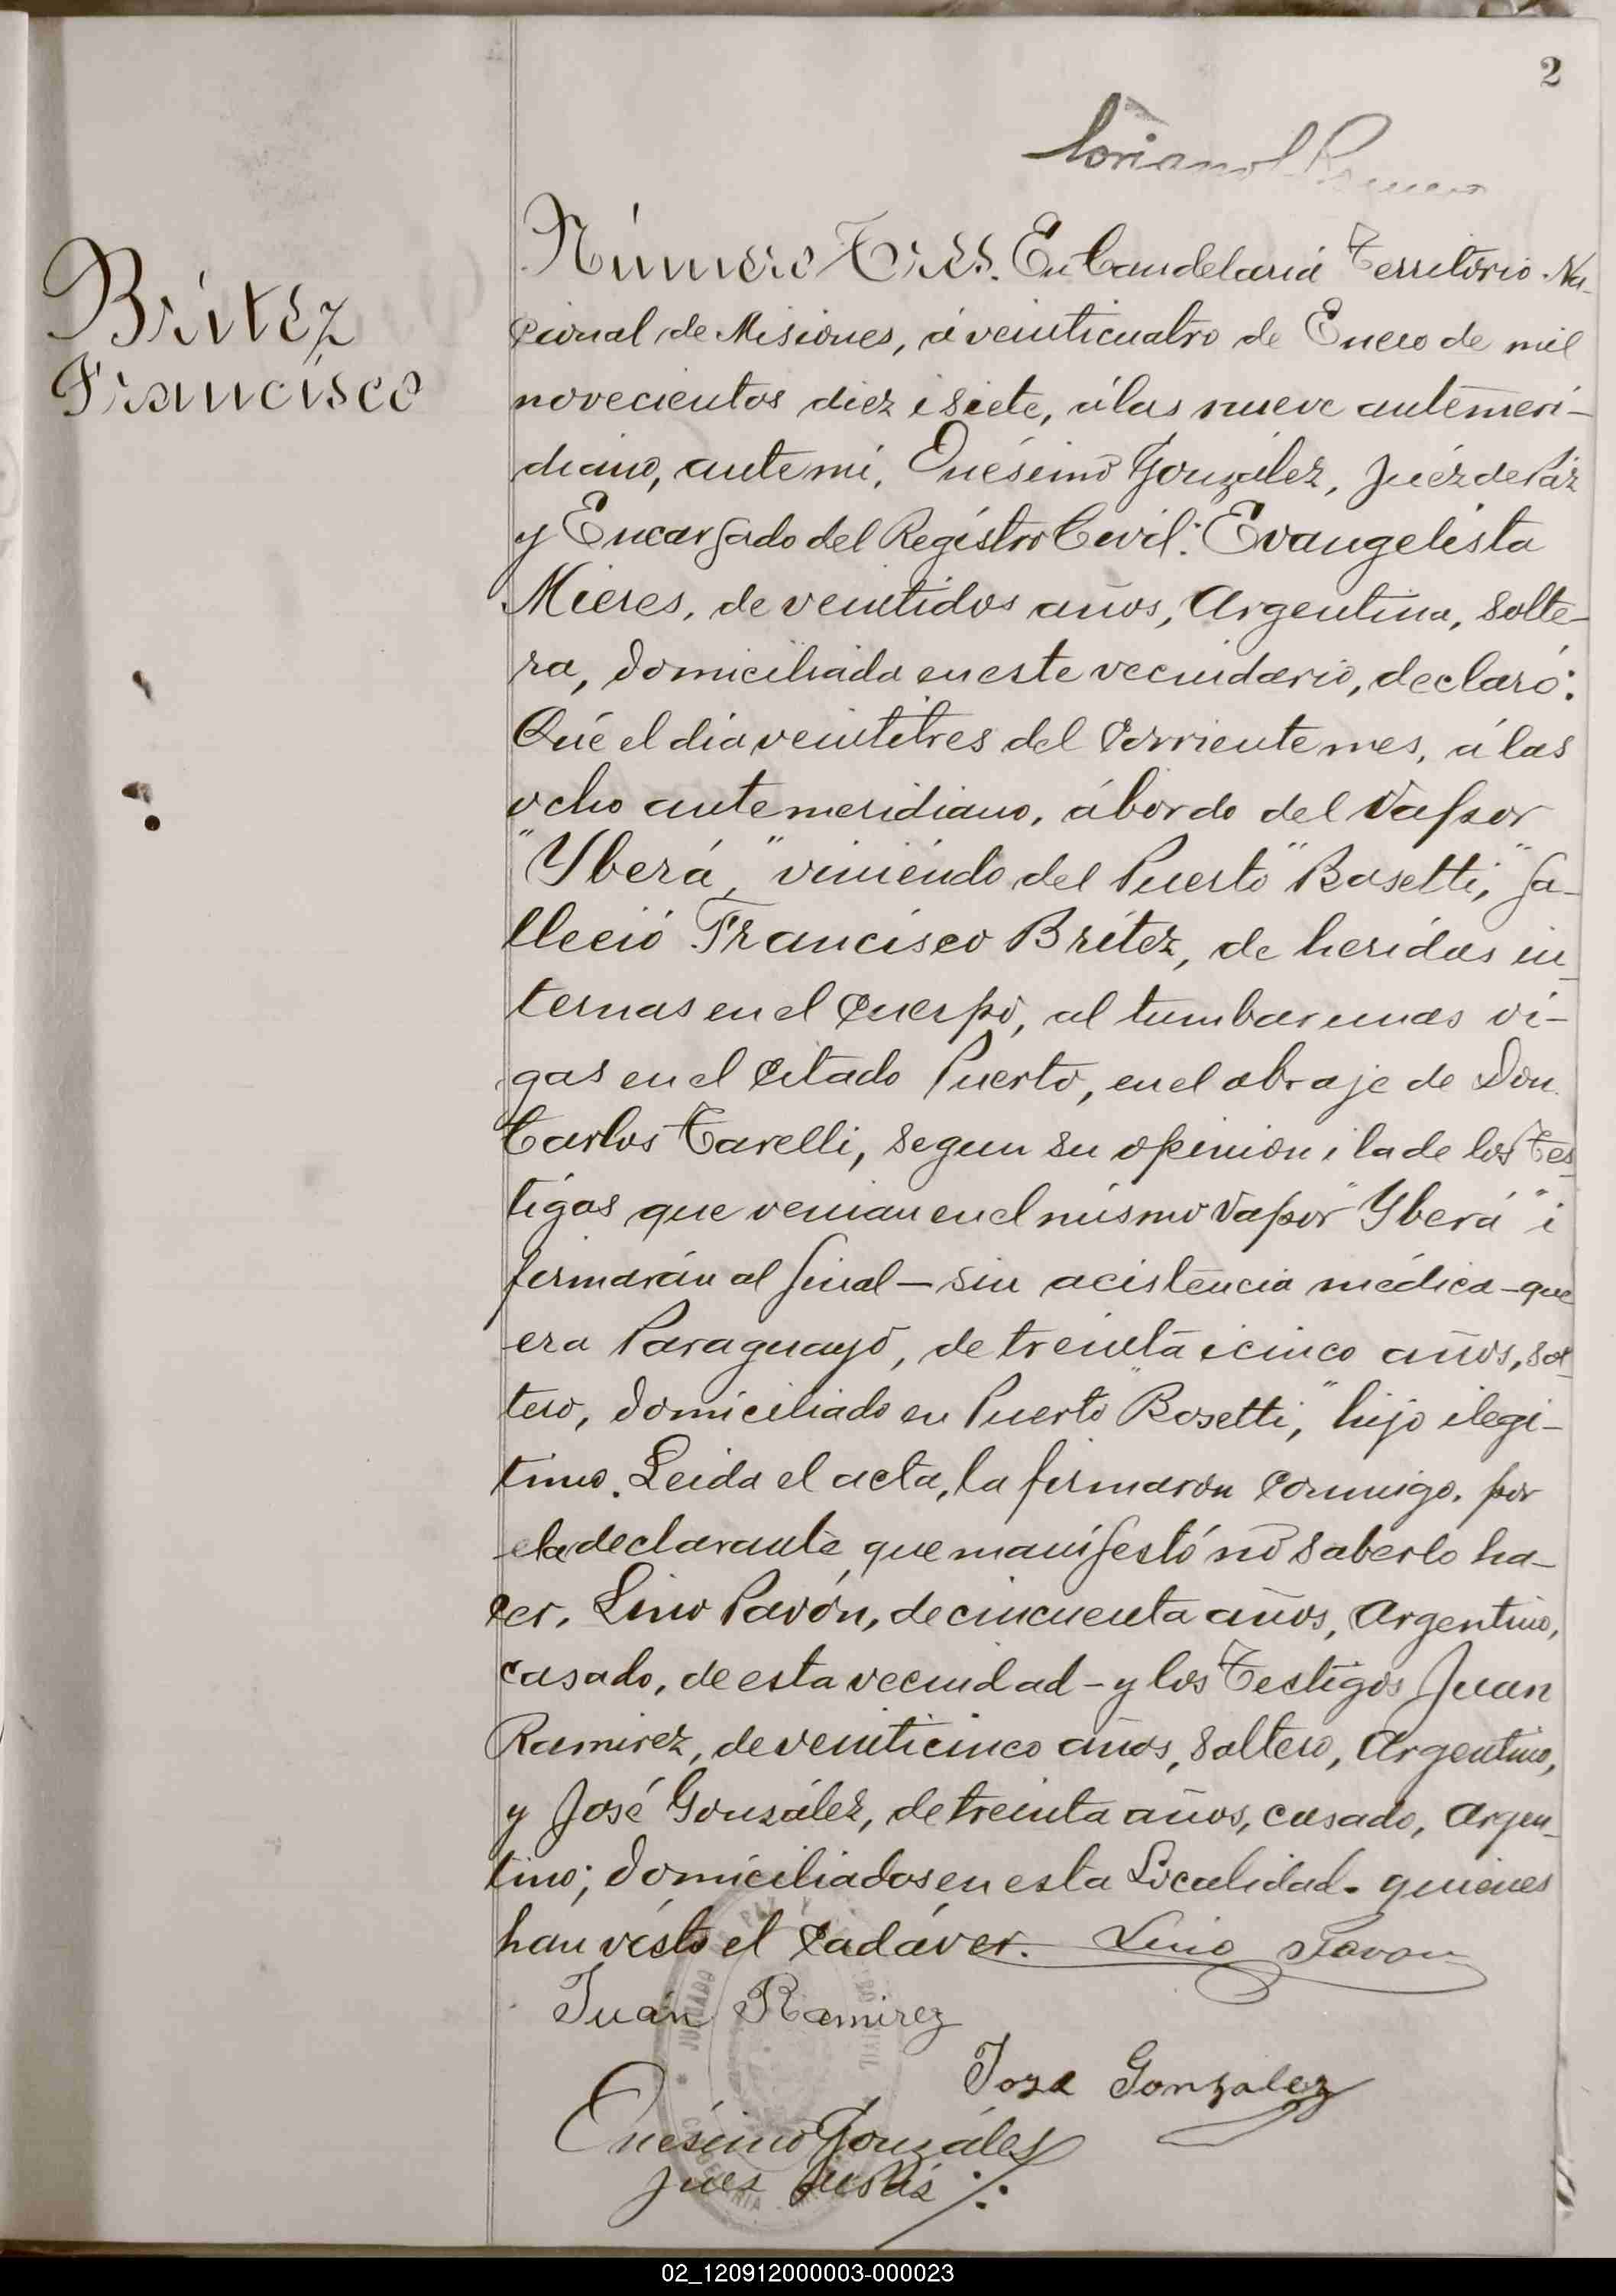 2
Número Tres. En Candelaria Territorio Na-
Britez
cional de Misiones, á veinticuatro de Enero de mil
Francisco
novecientos diez i siete, á las nueve antemeri-
diano, ante mí, Onésimo González, Juéz de Páz
y Encargado del Registro Civil: Evangelista
Mieres, de veintidos años, Argentina, solte-
ra, domiciliada en este vecindario, declaró:
Qué el día veintitres del corriente mes, á las
ocho antemeridiano, ábordo del Vapor
"Yberá," viniéndo del Puerto "Bosetti," fa-
lleció Francisco Britez, de heridas in-
ternas en el cuerpo, al tumbar unas vi-
gas en el citado Puerto, en el obraje de Don
Carlos Tarelli, segun su opinion i la de los Tes-
tigos que venian en el mismo Vapor "Yberá" i
firmarán al final — sin acistencia médica — que
era Paraguayo, de treinta i cinco años, sol-
tero, domiciliado en Puerto "Bosetti," hijo ilegi-
timo. Leida el acta, la firmaron conmigo, por
la declarante, que manifestó no saberlo ha-
cer, Lino Pavón, de cincuenta años, Argentino,
casado, de esta vecindad - y los Testigos Juan
Ramirez, de veinticinco años, soltero, Argentino,
y José González, de treinta años, casado, Argen-
tino; domiciliados en esta Localidad. quienes
han visto el cadáver. Lino Pavon
Juan Ramirez
Jose Gonzalez
Onésimo González
Juez de Paz
JUZGADO DE PAZ Y
CIVIL
02_120912000003-000023